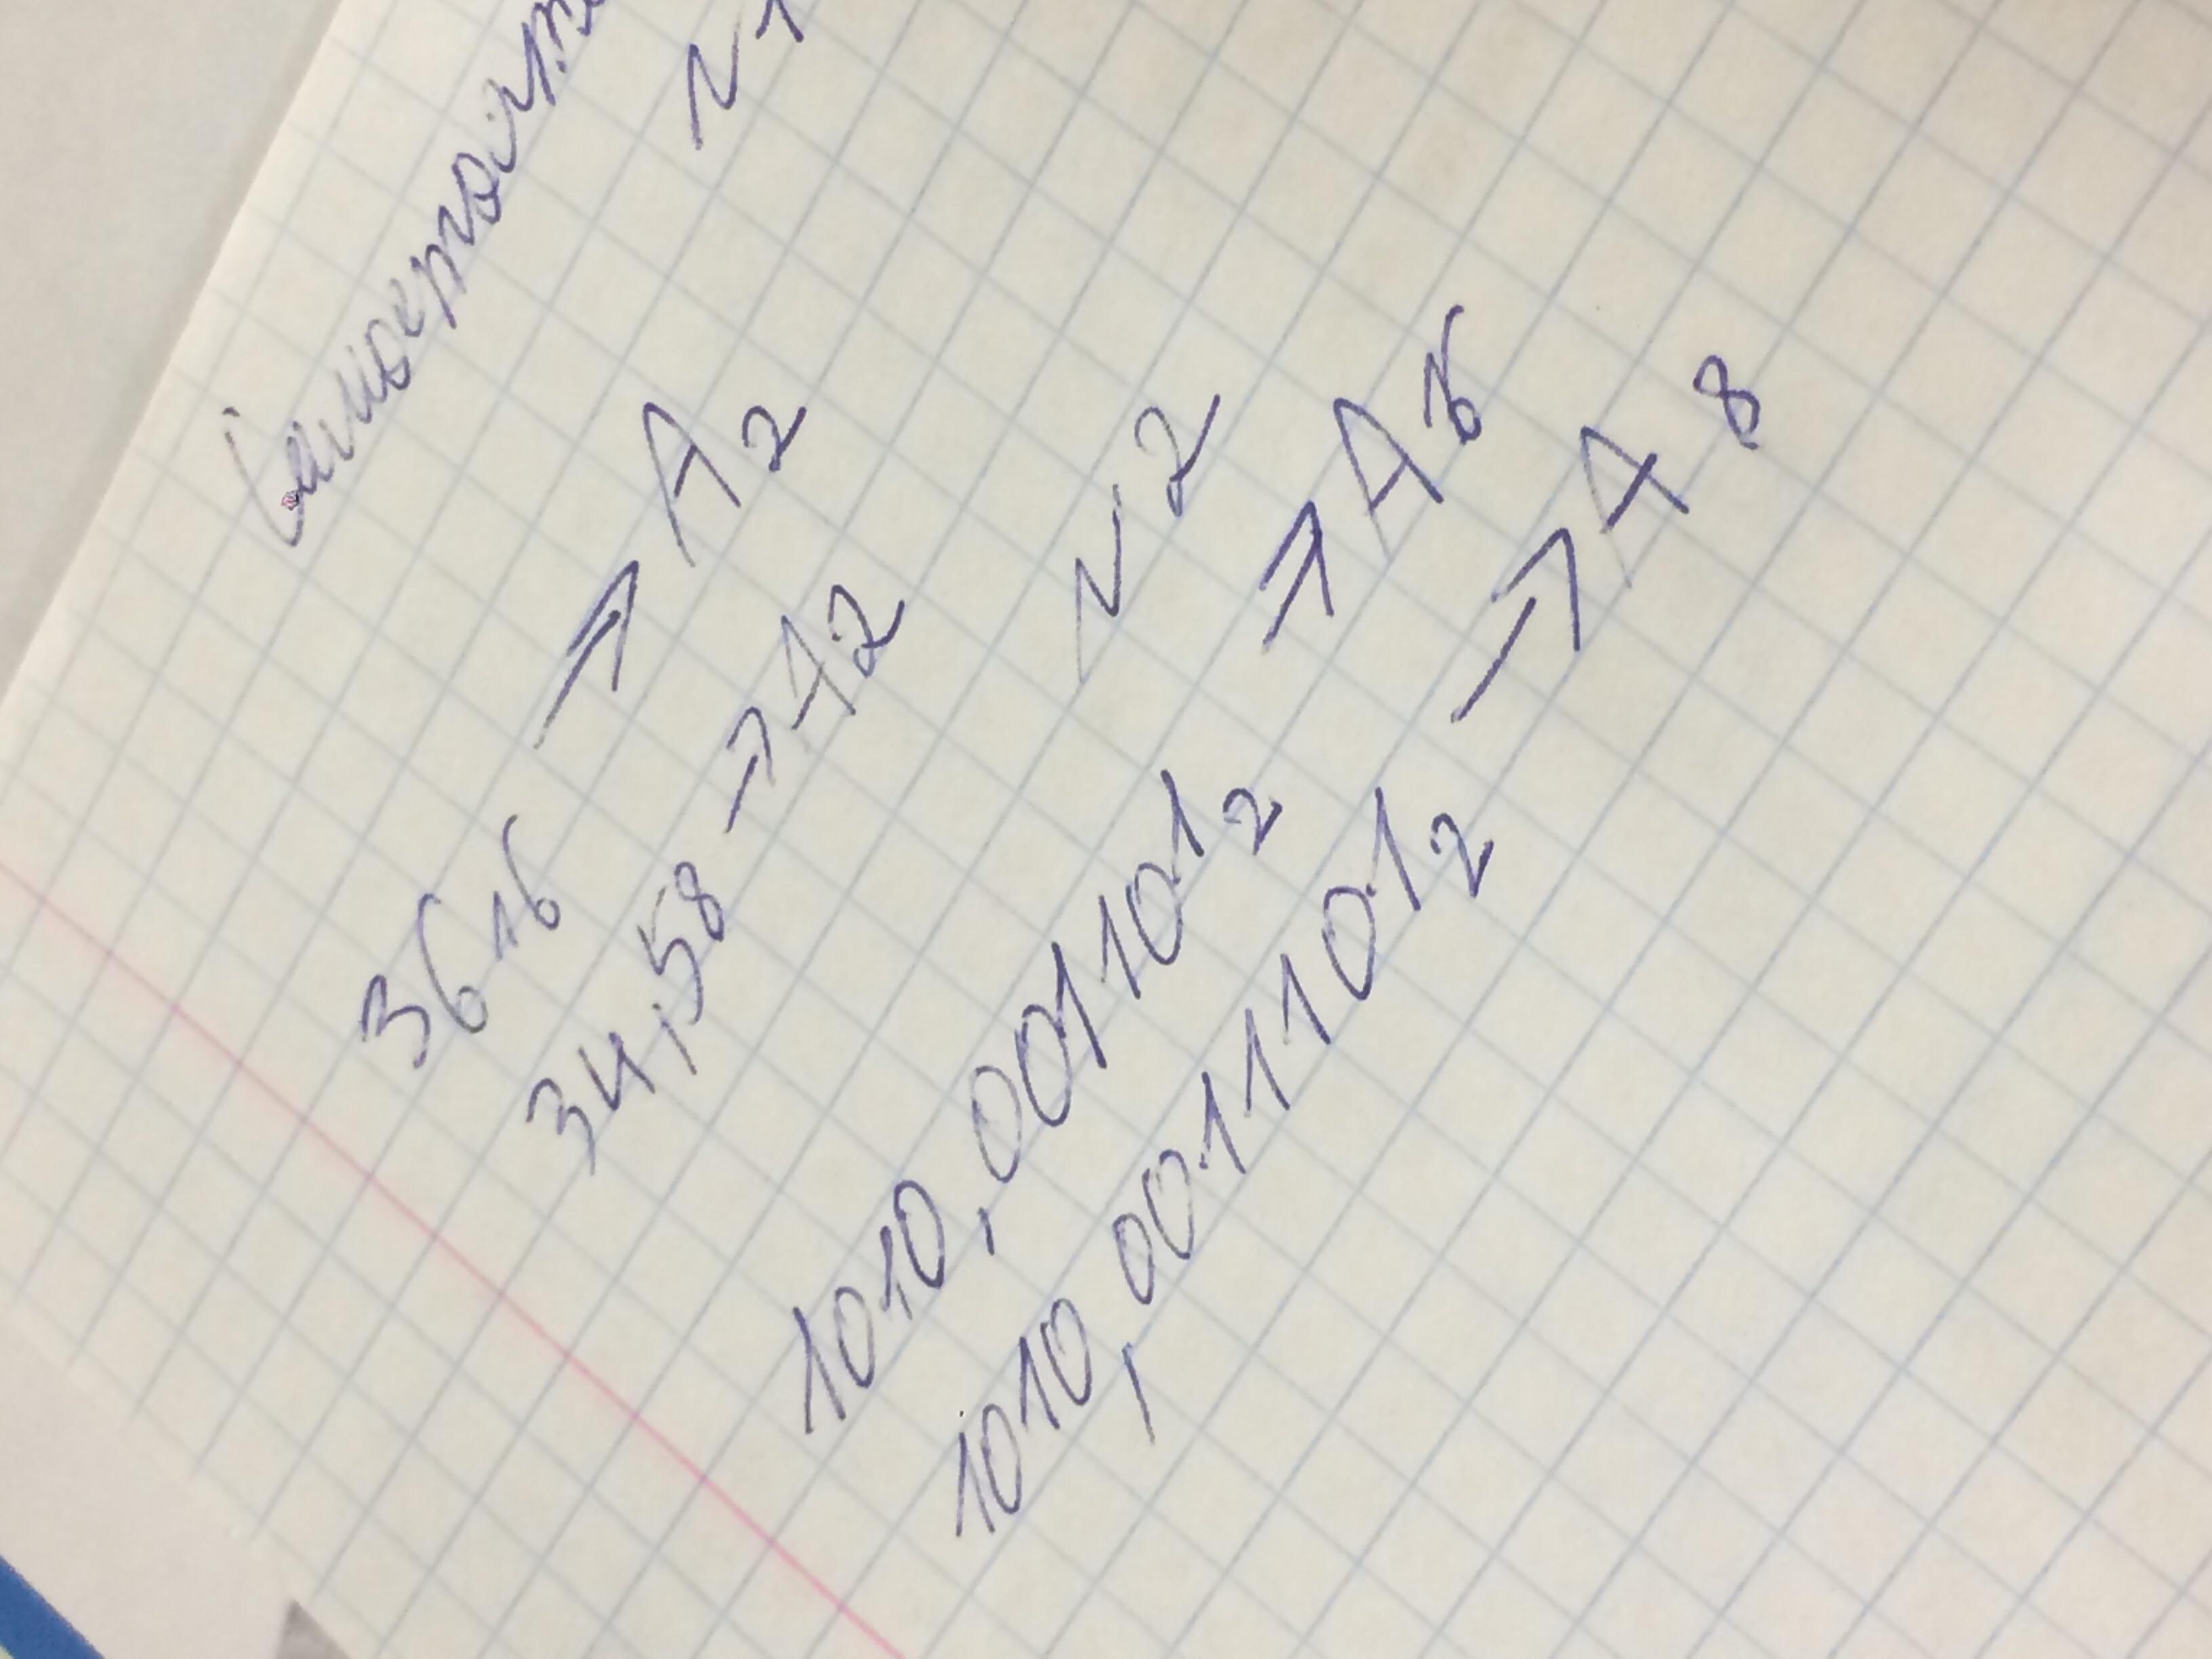 Самостоят
N 1
36₁₆ → A₂
34,5₈ → A₂
N 2
1010,0011101₂ → A₁₆
1010,00111101₂ → A₈